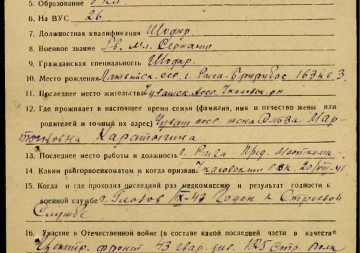 5. Образование 8 кл
6. На ВУС 26
7. Должностная квалификация Шофер
8. Военное звание Гв. Мл. Сержант
9. Гражданская специальность Шофер.
10. Место рождения Латвийск. сср г. Рига
11. Последнее место жительства Чувашск Асср
12. Где проживает в настоящее время семья (фамилия, имя и отчество жены или
родителей и точный их адрес) Чуваш асср жена Эльза Мар-
13. Последнее место работы и должность г. Рига
14. Каким райгорвоенкоматом и когда призван
15. Когда и где проходил последний раз медкомиссию и результат годности к
военной службе г. Глазов IX-43 Годен к строевой
Службе
16. Участие в Отечественной войне (в составе какой последней части и в качестве
Центр. фронт 43 гвар. див. 125 стр. полк